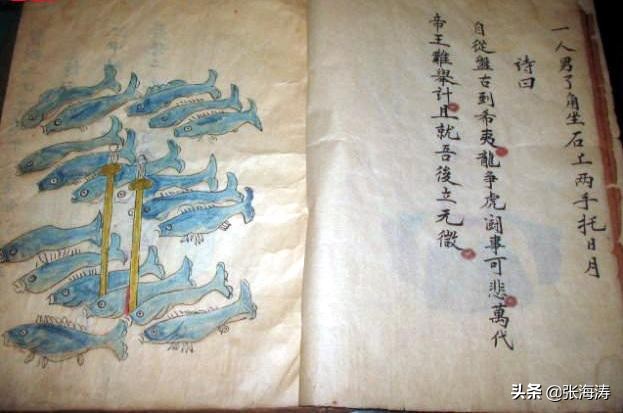 一人男了角坐石上两手托日月
诗曰
自從盤古到希夷龍爭虎闘事可悲萬代
帝王難舉計且就吾後立元徵
头条 @张海涛